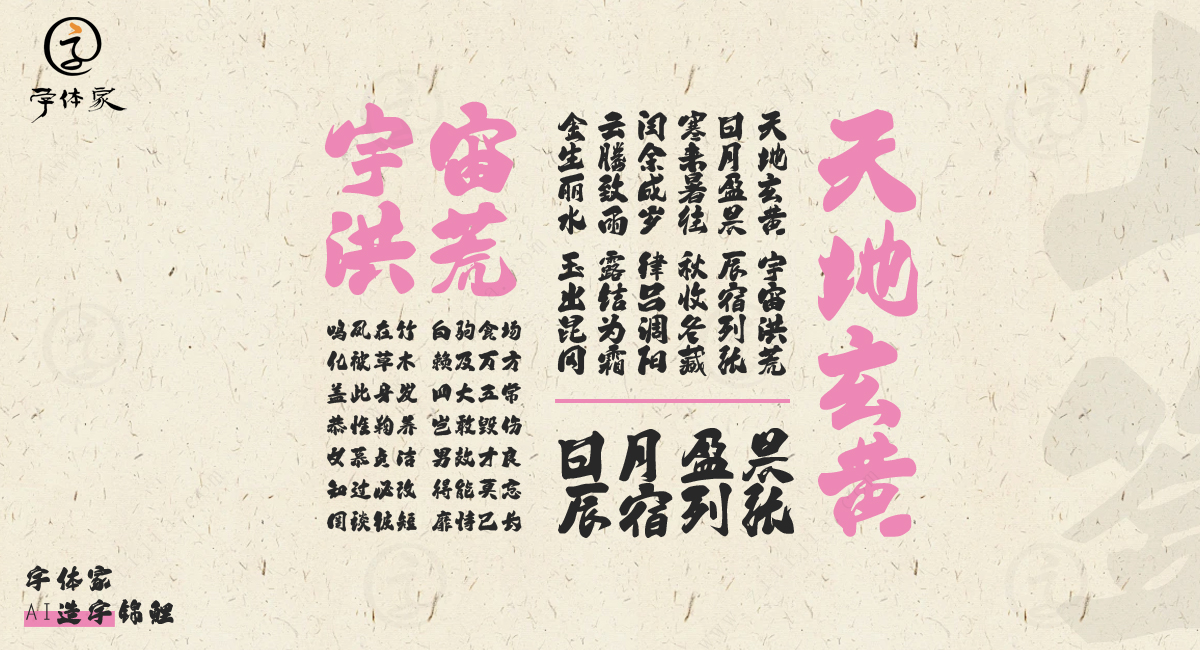 字体家
天地玄黄
天地玄黄
宇宙洪荒
日月盈昃
辰宿列张
寒来暑往
秋收冬藏
闰余成岁
律吕调阳
云腾致雨
露结为霜
金生丽水
玉出昆冈
日月盈昃
辰宿列张
宇宙
洪荒
鸣凤在竹 白驹食场
化被草木 赖及万方
盖此身发 四大五常
恭惟鞠养 岂敢毁伤
女慕贞洁 男效才良
知过必改 得能莫忘
罔谈彼短 靡恃己长
字体家
AI造字锦鲤